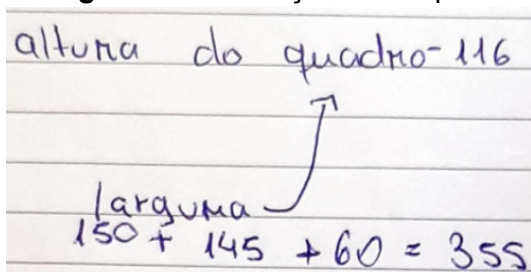 altura do quadro - 116
largura
150 + 145 + 60 = 355